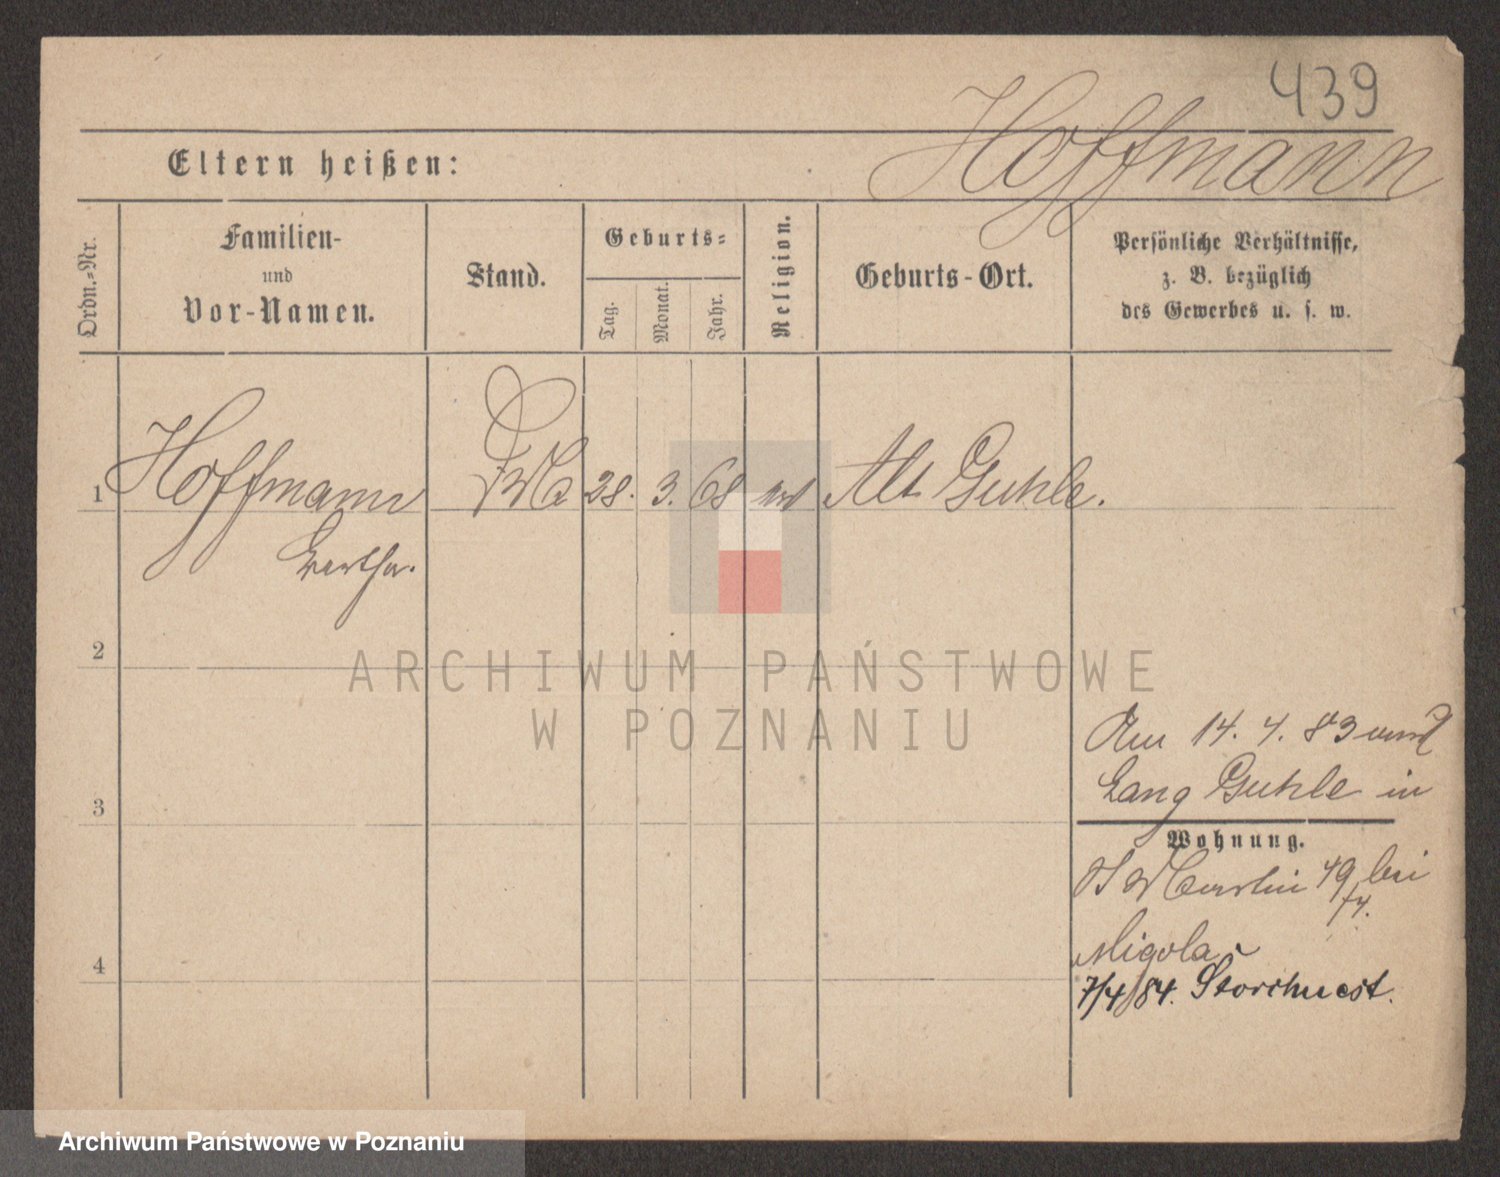 439
Hoffmann
Eltern heißen:
Ordn.-Nr.
Familien-
und
Vor-Namen.
Stand.
Geburts-
Tag.
Monat.
Jahr.
Religion.
Geburts-Ort.
Persönliche Verhältnisse,
z. B. bezüglich
des Gewerbes u. s. w.
1 Hoffmann 28. 3. 68 Alt Guhle.
Bertha.
2
3
4
Am 14. 4. 83
Lang Guhle in
Wohnung.
St Martin 49 bei
7/4 84. Storchnest.
ARCHIWUM PAŃSTWOWE
W POZNANIU
Archiwum Państwowe w Poznaniu